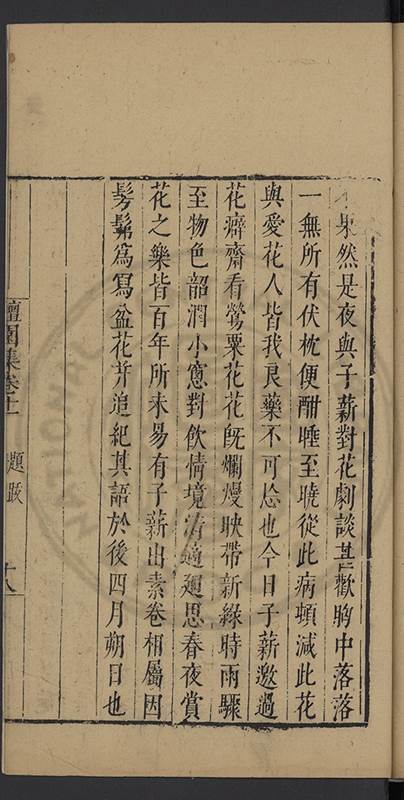 果然是夜與子薪對花劇談甚歡胸中落落
一無所有伏枕便酣睡至曉從此病頓減此花
與愛花人皆我良藥不可忘也今日子薪邀過
花癖齋看鶯粟花花旣爛熳映帶新綠時雨驟
至物色韶潤小窓對飲情境淸適廻思春夜賞
花之樂皆百年所未易有子薪出素卷相屬因
髣髴爲寫盆花并追紀其語於後四月朔日也
檀園集卷十二 題跋 十八